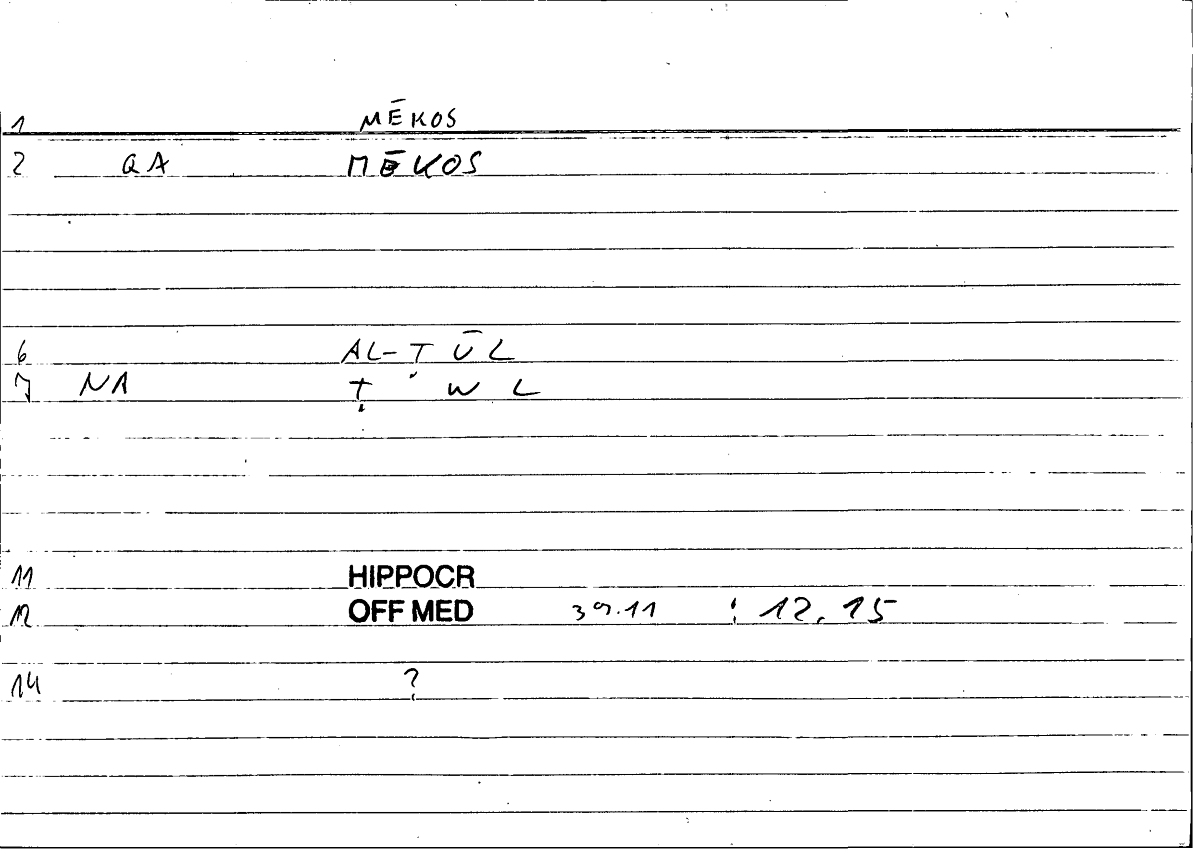 1 MĒKOS
2 QA MĒKOS
6 AL-ṬŪL
7 NA Ṭ W L
11 HIPPOCR
12 OFF MED 39.11 : 12,15
14 ?